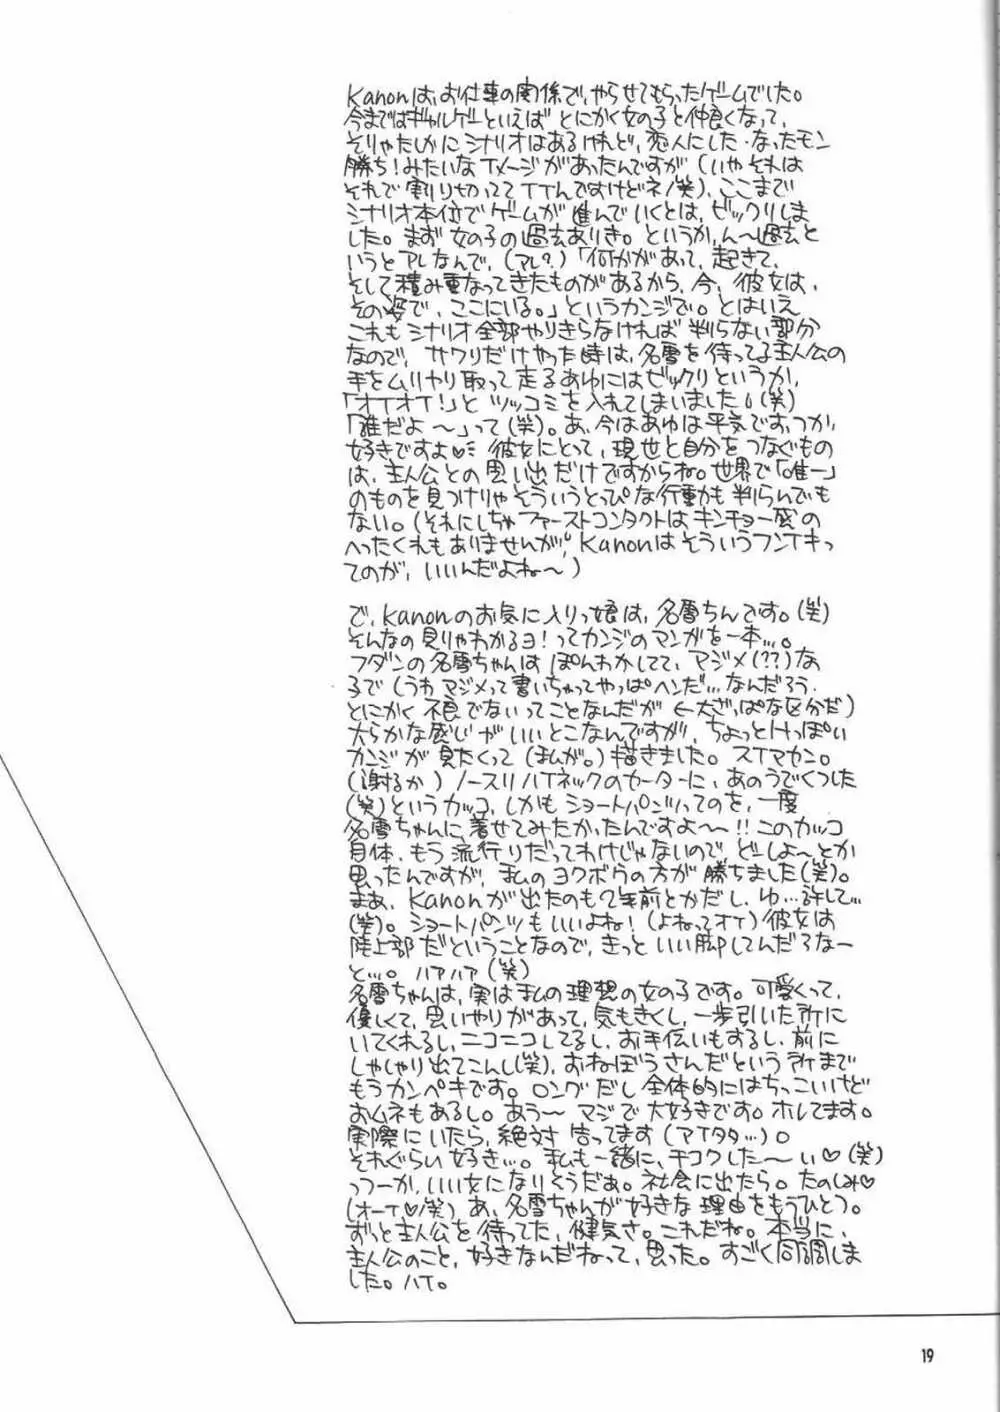 Kanonは、お仕事の関係で、やらせてもらったゲームでした。
今まではギャルゲーといえば とにかく女の子と仲良くなって、
そりゃたしかに シナリオはあるけれど、恋人にした・なったモン
勝ち!みたいな イメージがあったんですが (いや それは
それで 割り切ってて イイんですけどネ/笑)、ここまで
シナリオ本位で ゲームが 進んで いくとは、ビックリしま
した。まず 女の子の過去ありき。というか、ん〜過去と
いうと アレなんで、(アレ?)「何かがあって、起きて、
そして積み重なってきたものがあるから、今、彼女は、
その姿で、ここにいる。」というカンジで。とはいえ
これも シナリオ 全部やりきらなければ 判らない部分
なので、サワリだけやった時は、名雪を待ってる主人公の
手をムリヤリ取って 走るあゆにはビックリというか、
「オイオイ!」と ツッコミを入れてしまいました。(笑)
「誰だよ 〜」って(笑)。あ、今はあゆは平気です、つか、
好きですよ♡ 彼女にとって、現世と自分をつなぐもの
は、主人公との思い出だけですからね。世界で「唯一」
のものを見つけりゃ そういうとっぴな行動も 判らんでも
ない。(それにしちゃ ファーストコンタクトは キンチョー感の
へったくれも ありませんが、Kanonはそういうフンイキっ
てのが、いいんだよね〜)

で、Kanonのお気に入りっ娘は、名雪ちんです。(笑)
そんなの見りゃわかるヨ!ってカンジのマンガを一本…。
フダンの名雪ちゃんは ぽんわかしてて、マジメ(??)な
子で (うわ マジメって書いちゃってやっぱヘンだ…なんだろう、
とにかく 不良でないってことなんだが ←大ざっぱな区分だ)
大らかな感じが いいとこなんですが、ちょっとHっぽい
カンジが 見たくって (私が。)描きました。スイマセン。
(謝るか) ノースリ ハイネックのセーターに、あのうでくつした
(笑)というカッコ、しかも ショートパンツってのを、一度
名雪ちゃんに、着せてみたかったんですよ〜〜!!このカッコ
自体、もう 流行りだってわけじゃないので どーしよ〜とか
思ったんですが、私のヨクボウの方が 勝ちました(笑)。
まあ、Kanonが出たのも2年前とかだし、ゆ…許して…
(笑)。ショートパンツもいいよね! (よねってオイ)彼女は
陸上部だということなので、きっと いい脚してんだろなー
と…。ハアハア(笑)
名雪ちゃんは、実は私の理想の女の子です。可愛くって、
優しくて、思いやりがあって、気もきくし、一歩引いた所に
いてくれるし、ニコニコしてるし、お手伝いもするし、前に
しゃしゃり出てこんし(笑)、おねぼうさんだという 所まで
もうカンペキです。ロングだし 全体的にはちっこいけど
おムネもあるし。あう〜 マジで 大好きです。ホレてます。
実際にいたら、絶対 告ってます (アイタタ…)。
それぐらい 好き…。私も一緒に、チコクした〜い♡(笑)
っつーか、いい女になりそうだぁ。社会に出たら。たのしみ♡
(オーイ♡/笑) あ、名雪ちゃんが好きな理由をもうひとつ。
ずっと主人公を待ってた、健気さ。これだね。本当に、
主人公のこと、好きなんだねって、思った。すごく同調しま
した。ハイ。
19